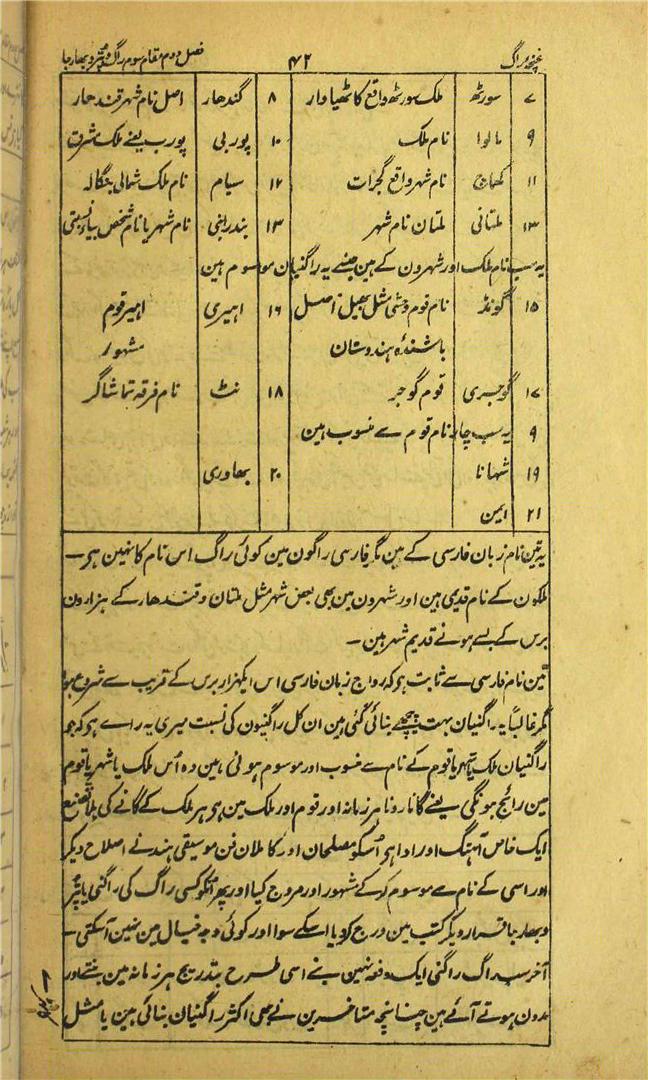 غنچہ راگ ۴۲ فصل دوم مقام سوم راگ و پتر و بھارجا
۷ سورٹھ ملک سورٹھ واقع کاٹھیاوار ۸ گندھار اصل نام شہر قندھار
۹ مالوا نام ملک ۱۰ پوربی پورب یعنے ملک شرق
۱۱ کھماچ نام شہر واقع گجرات ۱۲ سیام نام ملک شمالی بنگالہ
۱۳ ملتانی ملتان نام شہر ۱۳ بندرابنی نام شہر یا نام شخص بیاے نسبتی
یہ سب نام ملک اور شہرون کے ہین جنسے یہ راگنیان موسوم ہین
۱۵ گونڈ نام قوم وحشی مثل بھیل اصل ۱۶ اہیری اہیر قوم
باشندہ ہندوستان مشہور
۱۷ گوجری قوم گوجر ۱۸ نٹ نام فرقہ تماشاگر
۹ یہ سب چار نام قوم سے منسوب ہین
۱۹ شہانا ۲۰ بھاوری
۲۱ ایمن
یہ تین نام زبان فارسی کے ہین مگر فارسی راگون مین کوئی راگ اس نام کا نہین ہی۔
ملکون کے نام قدیمی ہین اور شہرون مین بھی بعض شہر مثل ملتان و قندھار کے ہزارون
برس کے بسے ہوئے قدیم شہر ہین۔
تین نام فارسی سے ثابت ہو کہ رواج زبان فارسی اس ایکہزار برس کے قریب سے شروع ہوا
مگر غالباً یہ راگنیان بہت پیچھے بنائی گئی ہین ان کل راگنیون کی نسبت میری یہ راے ہو کہ جو
راگنیان ملک یا شہر یا قوم کے نام سے منسوب اور موسوم ہوئی ہین وہ اُس ملک یا شہر یا قوم
مین رائج ہونگی یعنے گانا رونا ہر زمانہ اور قوم اور ملک مین ہو ہر ملک کے گانے کی بلا تصنع
ایک خاص آہنگ اور ادا ہو اُسکو مصلحان اور کاملان فن موسیقی ہند نے اصلاح دیکر
اور اسی کے نام سے موسوم کرکے مشہور اور مروج کیا اور پھر اُنکو کسی راگ کی راگنی یا پتر
و بھارجا قرار دیکر کتب مین درج کردیا اسکے سوا اور کوئی وجہ خیال مین نہین آسکتی۔
آخر سب راگ راگنی ایک دفعہ نہین بنے اسی طرح بتدریج ہر زمانہ مین بنتے اور
مدون ہوتے آئے ہین چنانچہ متاخرین نے بھی اکثر راگنیان بنائی ہین یا مثل